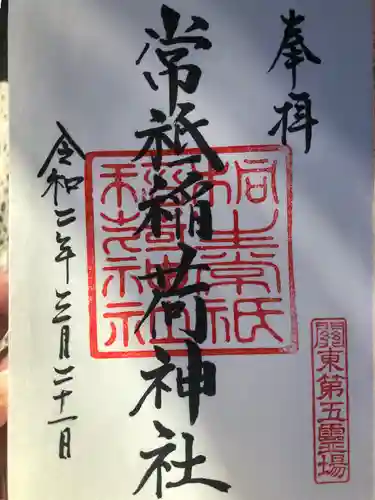 奉拝
常祇稲荷神社
桐生常祇
稲荷神社
令和二年三月二十一日
關東第五靈場